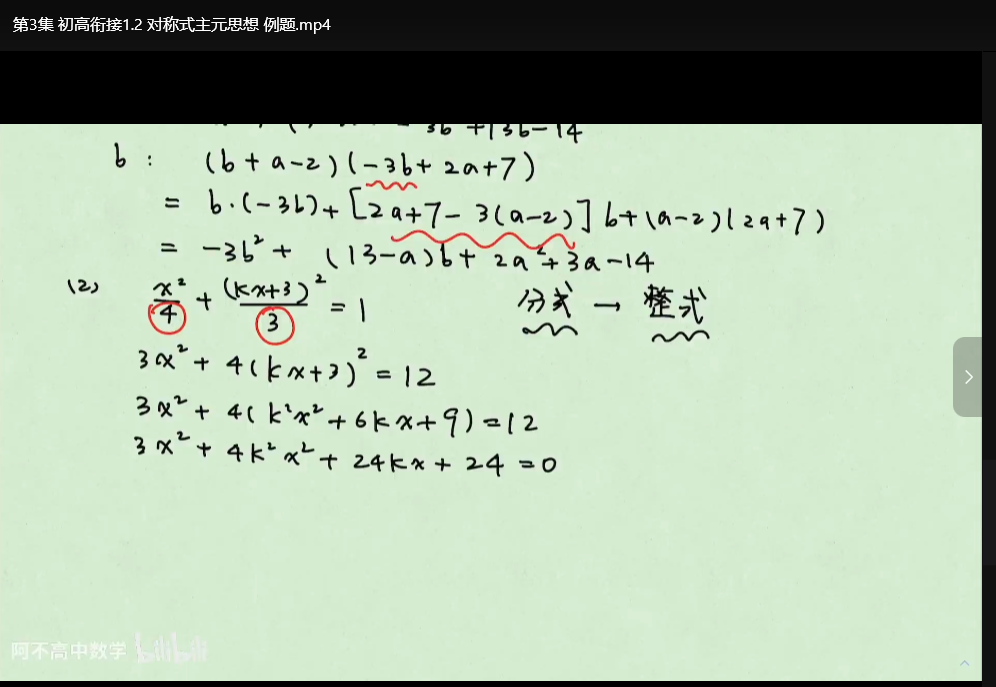 第3集 初高衔接1.2 对称式主元思想 例题.mp4
3b +13b-14
b : (b+a-2)(-3b+2a+7)
= b·(-3b)+[2a+7-3(a-2)]b+(a-2)(2a+7)
= -3b²+(13-a)b+2a²+3a-14
(2) x²/4 + (kx+3)²/3 = 1 分式 → 整式
3x²+4(kx+3)²=12
3x²+4(k²x²+6kx+9)=12
3x²+4k²x²+24kx+24=0
阿不高中数学 bilibili